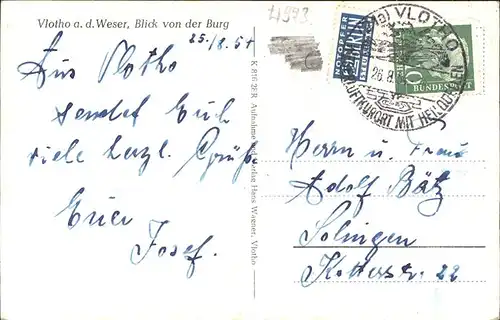 Vlotho a.d. Weser, Blick von der Burg
25./8.54
Aus Vlotho
sendet Euch
viele herzl. Grüße
Euer
Josef.
K 816 2ER Aufnahme und Verlag Hans Wagner, Vlotho
NOTOPFER
BERLIN
STEUERMARKE
VLOTHO
26.8.
LUFTKURORT MIT HEILQUELLEN
10
BUNDESPOST
Herrn u. Frau
Adolf Bätz
Solingen
22